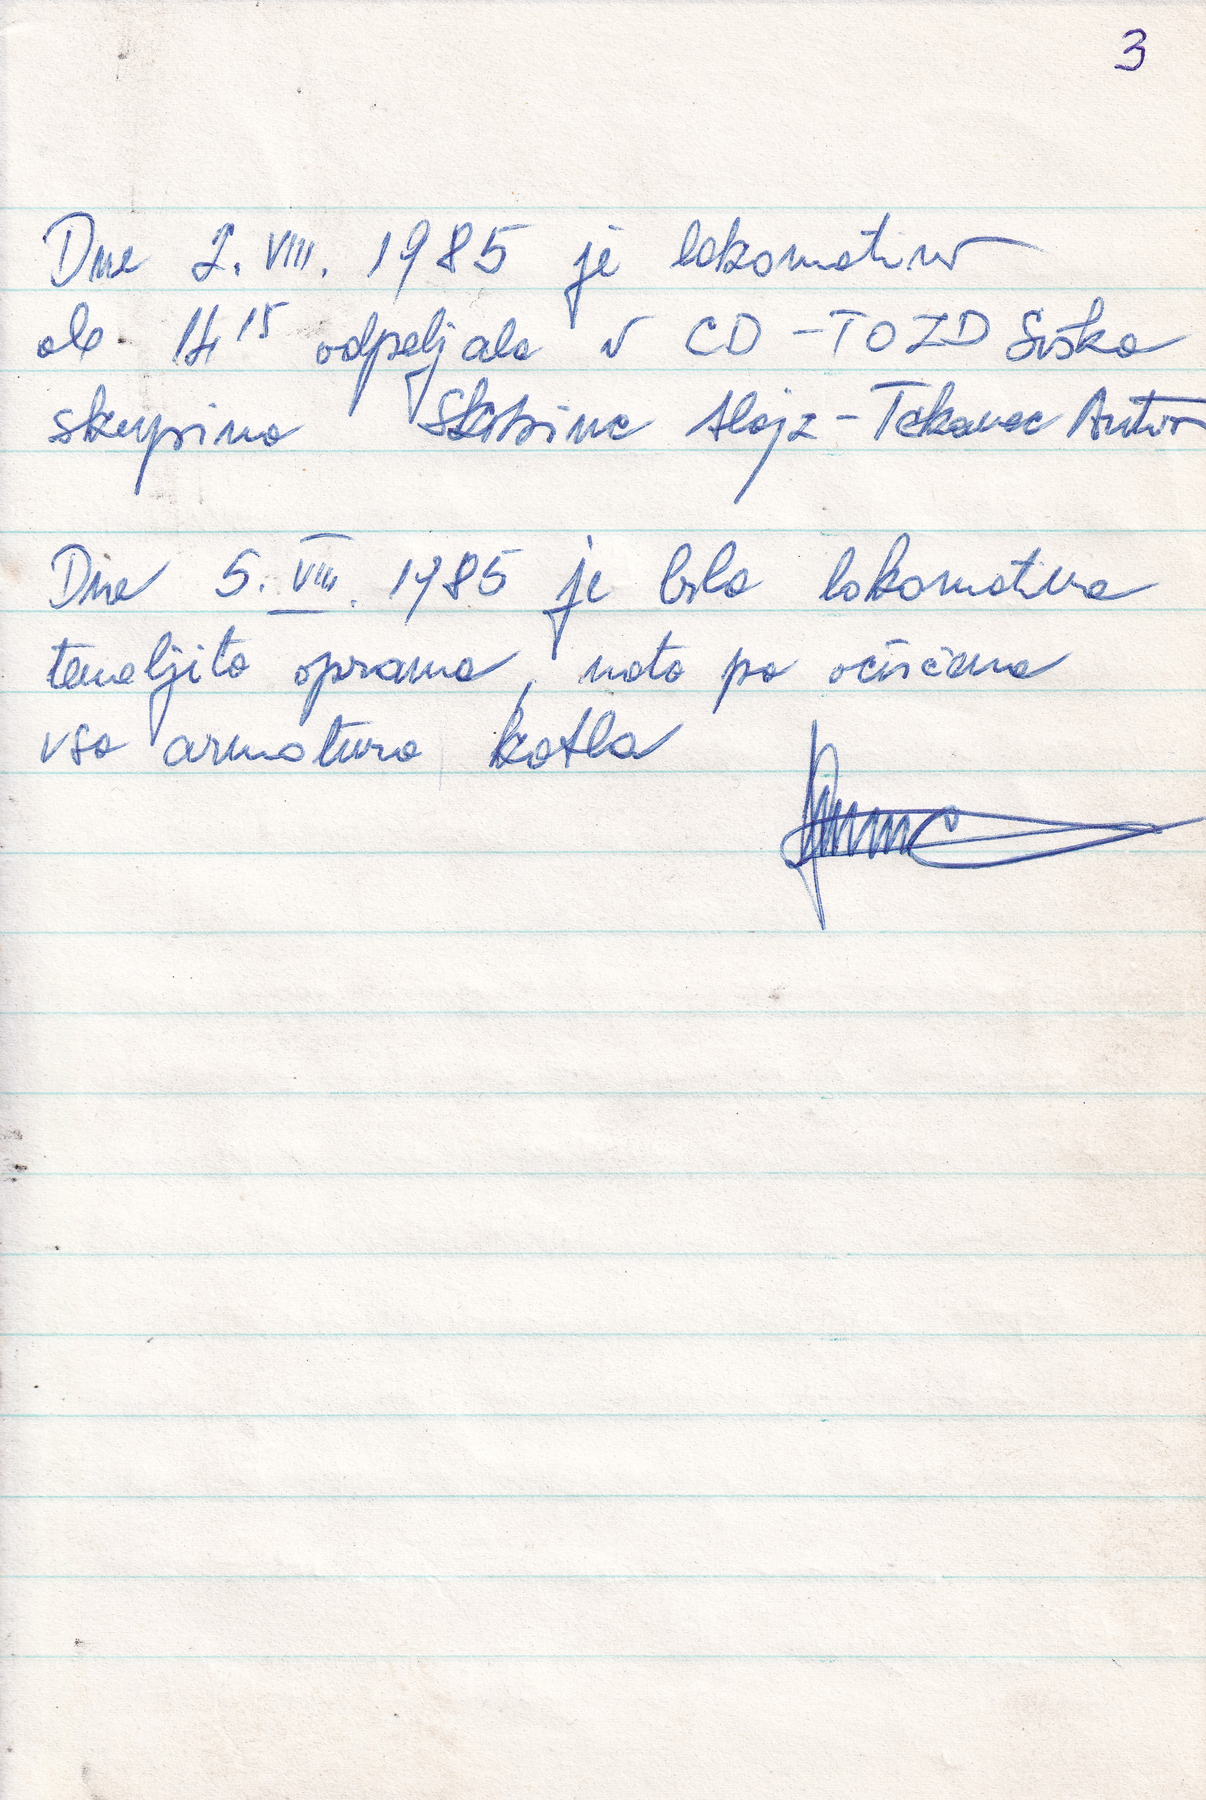 3
Dne 2. VIII. 1985 je lokomotivo
ob 14 15 odpeljala v CD - TOZD Šiška
skupina Skubinc Alojz - Tekavec Anton
Dne 5. VIII. 1985 je bila lokomotiva
temeljito oprana, nato pa očiščena
vsa armatura kotla